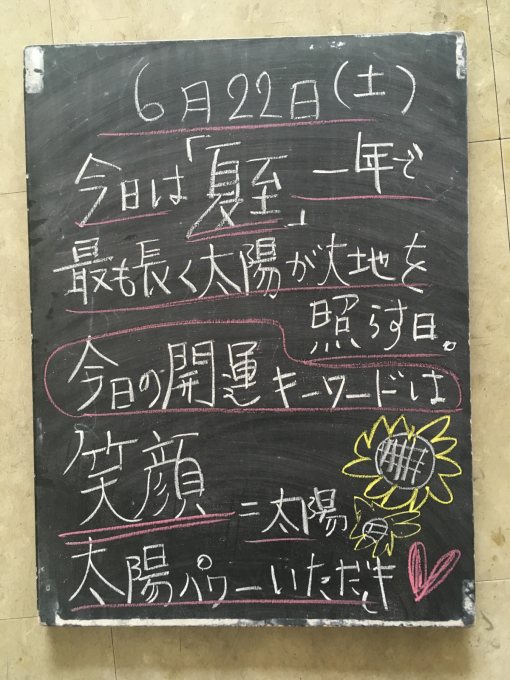 6月22日(土)
今日は「夏至」一年で
最も長く太陽が大地を
照らす日。
今日の開運キーワードは
笑顔=太陽
太陽パワーいただき